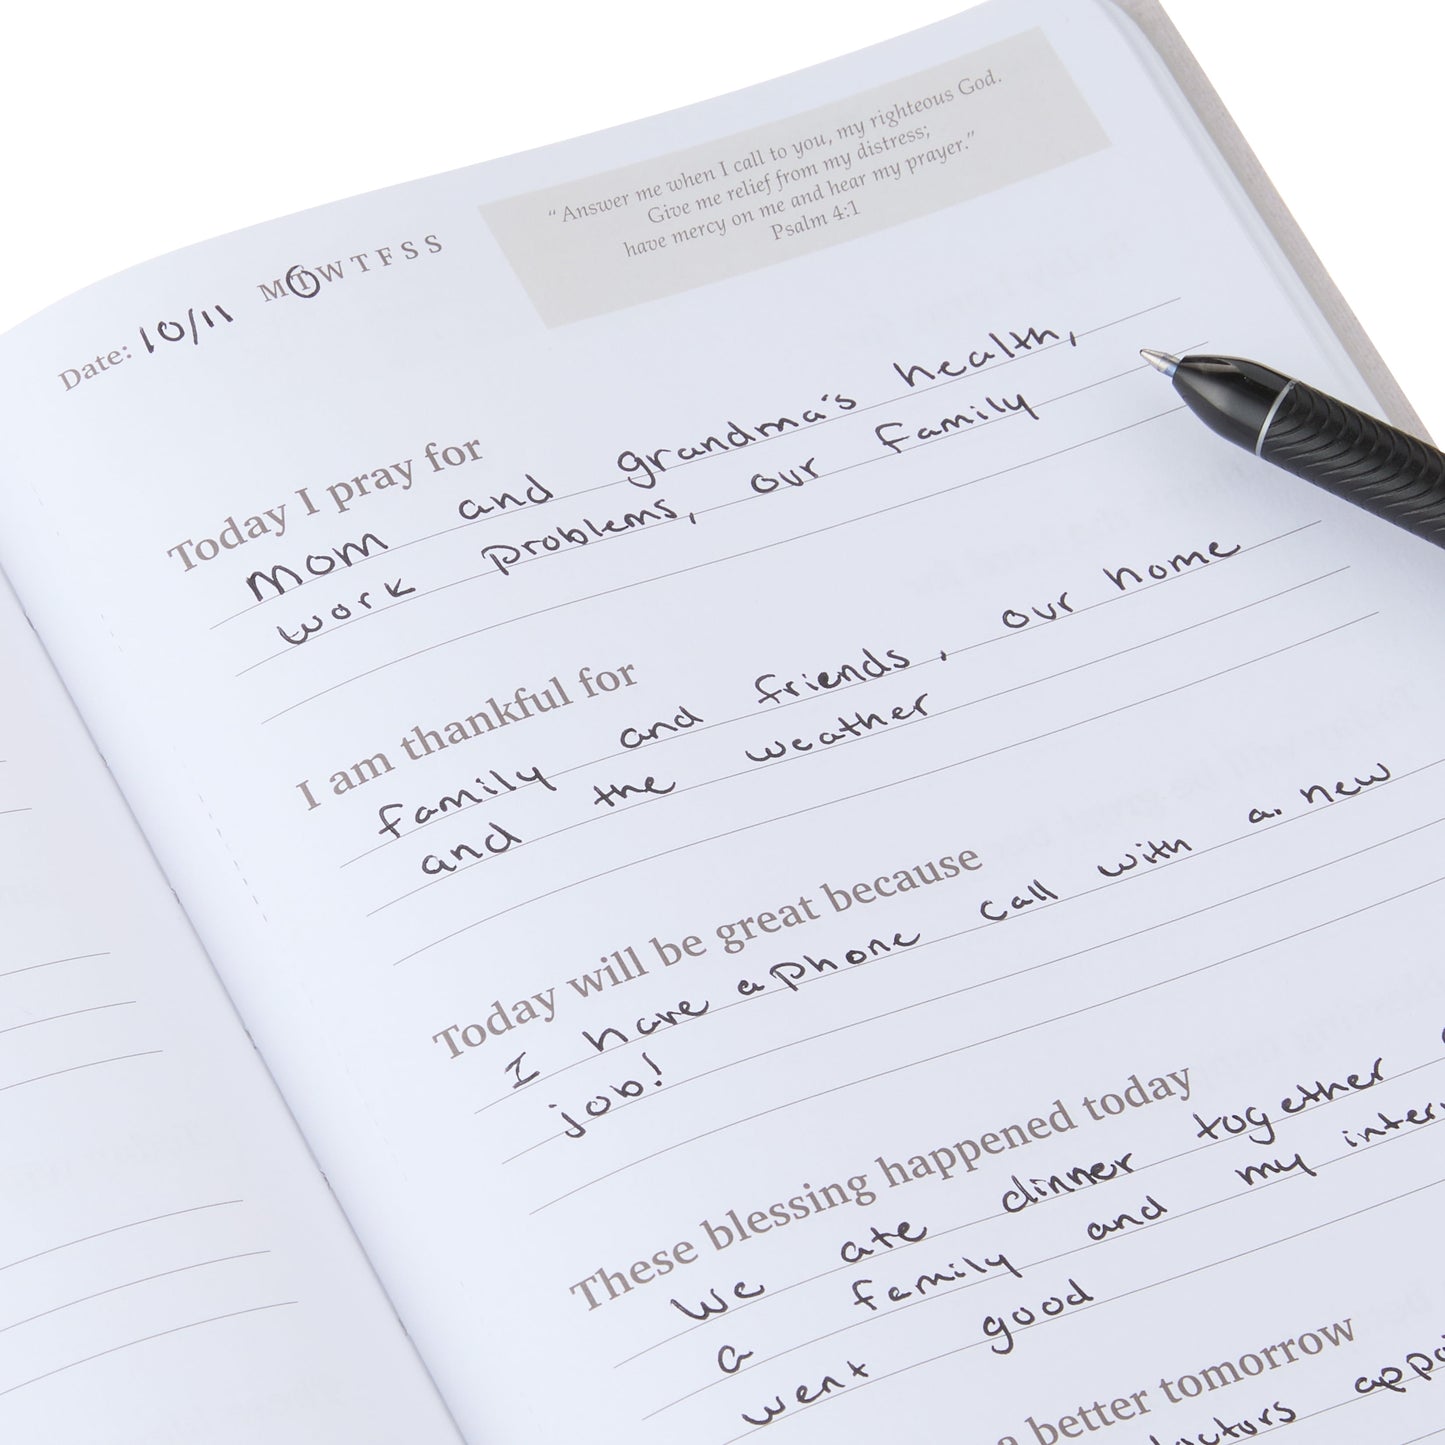 “Answer me when I call to you, my righteous God.
Give me relief from my distress;
have mercy on me and hear my prayer.”
Psalm 4:1
Date: 10/11 M T W T F S S
Today I pray for
Mom and grandma's health,
work problems, our family
I am thankful for
family and friends, our home
and the weather
Today will be great because
I have a phone call with a new
job!
These blessing happened today
We ate dinner together
a family and my
went good
a better tomorrow